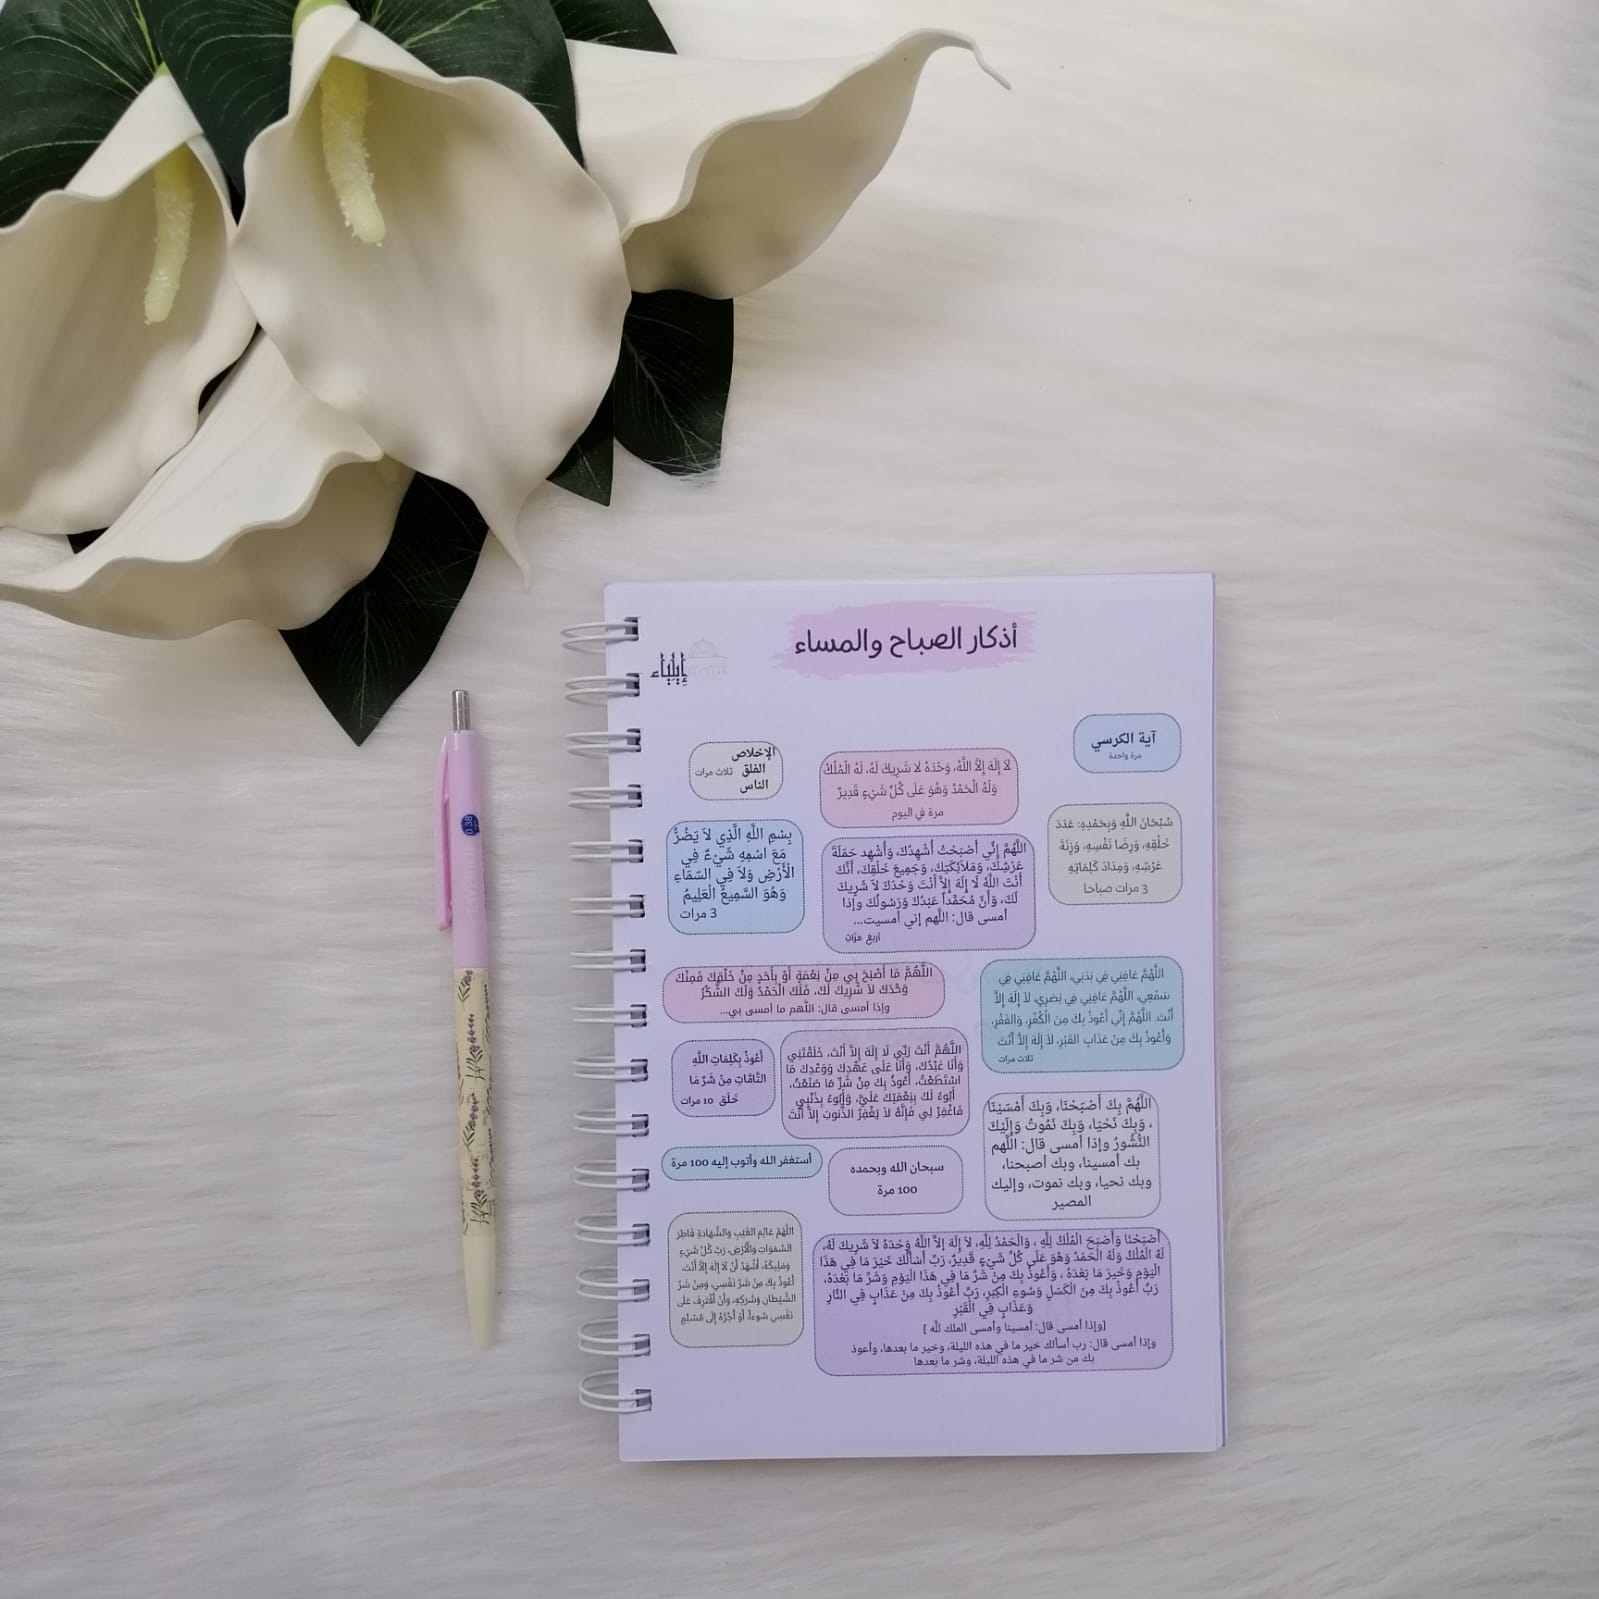 أذكار الصباح والمساء
إيلياء
آية الكرسي
مرة واحدة
لاَ إِلَهَ إِلاَّ اللَّهُ، وَحْدَهُ لا شَرِيكَ لَهُ، لَهُ الْمُلْكُ
وَلَهُ الْحَمْدُ وَهُوَ عَلَى كُلِّ شَيْءٍ قَدِيرٌ
مرة في اليوم
الإخلاص
الفلق ثلاث مرات
الناس
سُبْحَانَ اللَّهِ وَبِحَمْدِهِ: عَدَدَ
خَلْقِهِ، وَرِضَا نَفْسِهِ، وَزِنَةَ
عَرْشِهِ، وَمِدَادَ كَلِمَاتِهِ
3 مرات صباحا
اللَّهُمَّ إِنِّي أَصْبَحْتُ أُشْهِدُكَ، وَأُشْهِد حَمَلَةَ
عَرْشِكَ، وَمَلاَئِكَتِكَ، وَجَمِيعَ خَلْقِكَ، أَنَّكَ
أَنْتَ اللَّهُ لَا إِلَهَ إِلاَّ أَنْتَ وَحْدَكَ لاَ شَرِيكَ
لَكَ، وَأَنَّ مُحَمَّداً عَبْدُكَ وَرَسُولُكَ وإذا
أمسى قال: اللَّهم إني أمسيت...
أربعَ مرَّاتِ
بِسْمِ اللَّهِ الَّذِي لاَ يَضُرُّ
مَعَ اسْمِهِ شَيْءٌ فِي
الْأَرْضِ وَلاَ فِي السّمَاءِ
وَهُوَ السَّمِيعُ الْعَلِيمُ
3 مرات
اللَّهُمَّ عَافِنِي فِي بَدَنِي، اللَّهُمَّ عَافِنِي فِي
سَمْعِي، اللَّهُمَّ عَافِنِي فِي بَصَرِي، لاَ إِلَهَ إِلاَّ
أَنْتَ. اللَّهُمَّ إِنِّي أَعُوذُ بِكَ مِنَ الْكُفْرِ، وَالفَقْرِ،
وَأَعُوذُ بِكَ مِنْ عَذَابِ القَبْرِ، لاَ إِلَهَ إِلاَّ أَنْتَ
ثلاث مرات
اللَّهُمَّ مَا أَصْبَحَ بِي مِنْ نِعْمَةٍ أَوْ بِأَحَدٍ مِنْ خَلْقِكَ فَمِنْكَ
وَحْدَكَ لاَ شَرِيكَ لَكَ، فَلَكَ الْحَمْدُ وَلَكَ الشُّكْرُ
وإذا أمسى قال: اللَّهم ما أمسى بي...
اللَّهُمَّ أَنْتَ رَبِّي لَا إِلَهَ إِلاَّ أَنْتَ، خَلَقْتَنِي
وَأَنَا عَبْدُكَ، وَأَنَا عَلَى عَهْدِكَ وَوَعْدِكَ مَا
اسْتَطَعْتُ، أَعُوذُ بِكَ مِنْ شَرِّ مَا صَنَعْتُ،
أَبُوءُ لَكَ بِنِعْمَتِكَ عَلَيَّ، وَأَبُوءُ بِذَنْبِي
فَاغْفِرْ لِي فَإِنَّهُ لاَ يَغْفِرُ الذُّنوبَ إِلاَّ أَنْتَ
أَعُوذُ بِكَلِمَاتِ اللَّهِ
التَّامَّاتِ مِنْ شَرِّ مَا
خَلَقَ 10 مرات
اللَّهُمَّ بِكَ أَصْبَحْنَا، وَبِكَ أَمْسَيْنَا
، وَبِكَ نَحْيَا، وَبِكَ نَمُوتُ وَإِلَيْكَ
النُّشُورُ وإذا أمسى قال: اللَّهم
بك أمسينا، وبك أصبحنا،
وبك نحيا، وبك نموت، وإليك
المصير
سبحان الله وبحمده
100 مرة
أستغفر الله وأتوب إليه 100 مرة
أَصْبَحْنَا وَأَصْبَحَ الْمُلْكُ لِلَّهِ ، وَالْحَمْدُ لِلَّهِ، لاَ إِلَهَ إلاَّ اللَّهُ وَحْدَهُ لاَ شَرِيكَ لَهُ،
لَهُ الْمُلْكُ وَلَهُ الْحَمْدُ وَهُوَ عَلَى كُلِّ شَيْءٍ قَدِيرٌ، رَبِّ أَسْأَلُكَ خَيْرَ مَا فِي هَذَا
الْيَوْمِ وَخَيرَ مَا بَعْدَهُ ، وَأَعُوذُ بِكَ مِنْ شَرِّ مَا فِي هَذَا الْيَوْمِ وَشَرِّ مَا بَعْدَهُ،
رَبِّ أَعُوذُ بِكَ مِنَ الْكَسَلِ وَسُوءِ الْكِبَرِ، رَبِّ أَعُوذُ بِكَ مِنْ عَذَابٍ فِي النَّارِ
وَعَذَابٍ فِي الْقَبْرِ
[وإذا أمسى قال: أمسينا وأمسى الملك للَّه ]
وإذا أمسى قال: رب أسألك خير ما في هذه الليلة، وخير ما بعدها، وأعوذ
بك من شر ما في هذه الليلة، وشر ما بعدها
اللَّهُمَّ عَالِمَ الغَيْبِ وَالشَّهَادَةِ فَاطِرَ
السَّمَوَاتِ وَالْأَرْضِ، رَبَّ كُلِّ شَيْءٍ
وَمَلِيكَهُ، أَشْهَدُ أَنْ لاَ إِلَهَ إِلاَّ أَنْتَ،
أَعُوذُ بِكَ مِنْ شَرِّ نَفْسِي، وَمِنْ شَرِّ
الشَّيْطانِ وَشَرَكِهِ، وَأَنْ أَقْتَرِفَ عَلَى
نَفْسِي سُوءاً، أَوْ أَجُرَّهُ إِلَى مُسْلِمٍ
0.38